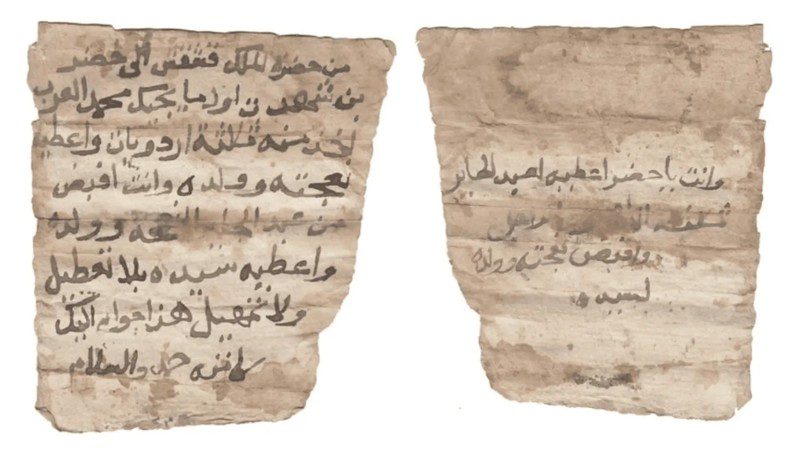 من حضرة الملك قشقش الى خضر
بن شهد اول ما يجيك محمد العرب
تخذ منه ثلاثة اردويات واعطيه
نعجته وولده وانت اقبض
من عبد الجابر النعجة وولده
واعطيه سيده بلا تعطيل
ولا تمهيل هذا جوابي اليك
كاتبه حمد والسلام
وانت يا خضر اعطيه لعبد الجابر
ثلاثة
واقبض نعجته وولده
لسيده